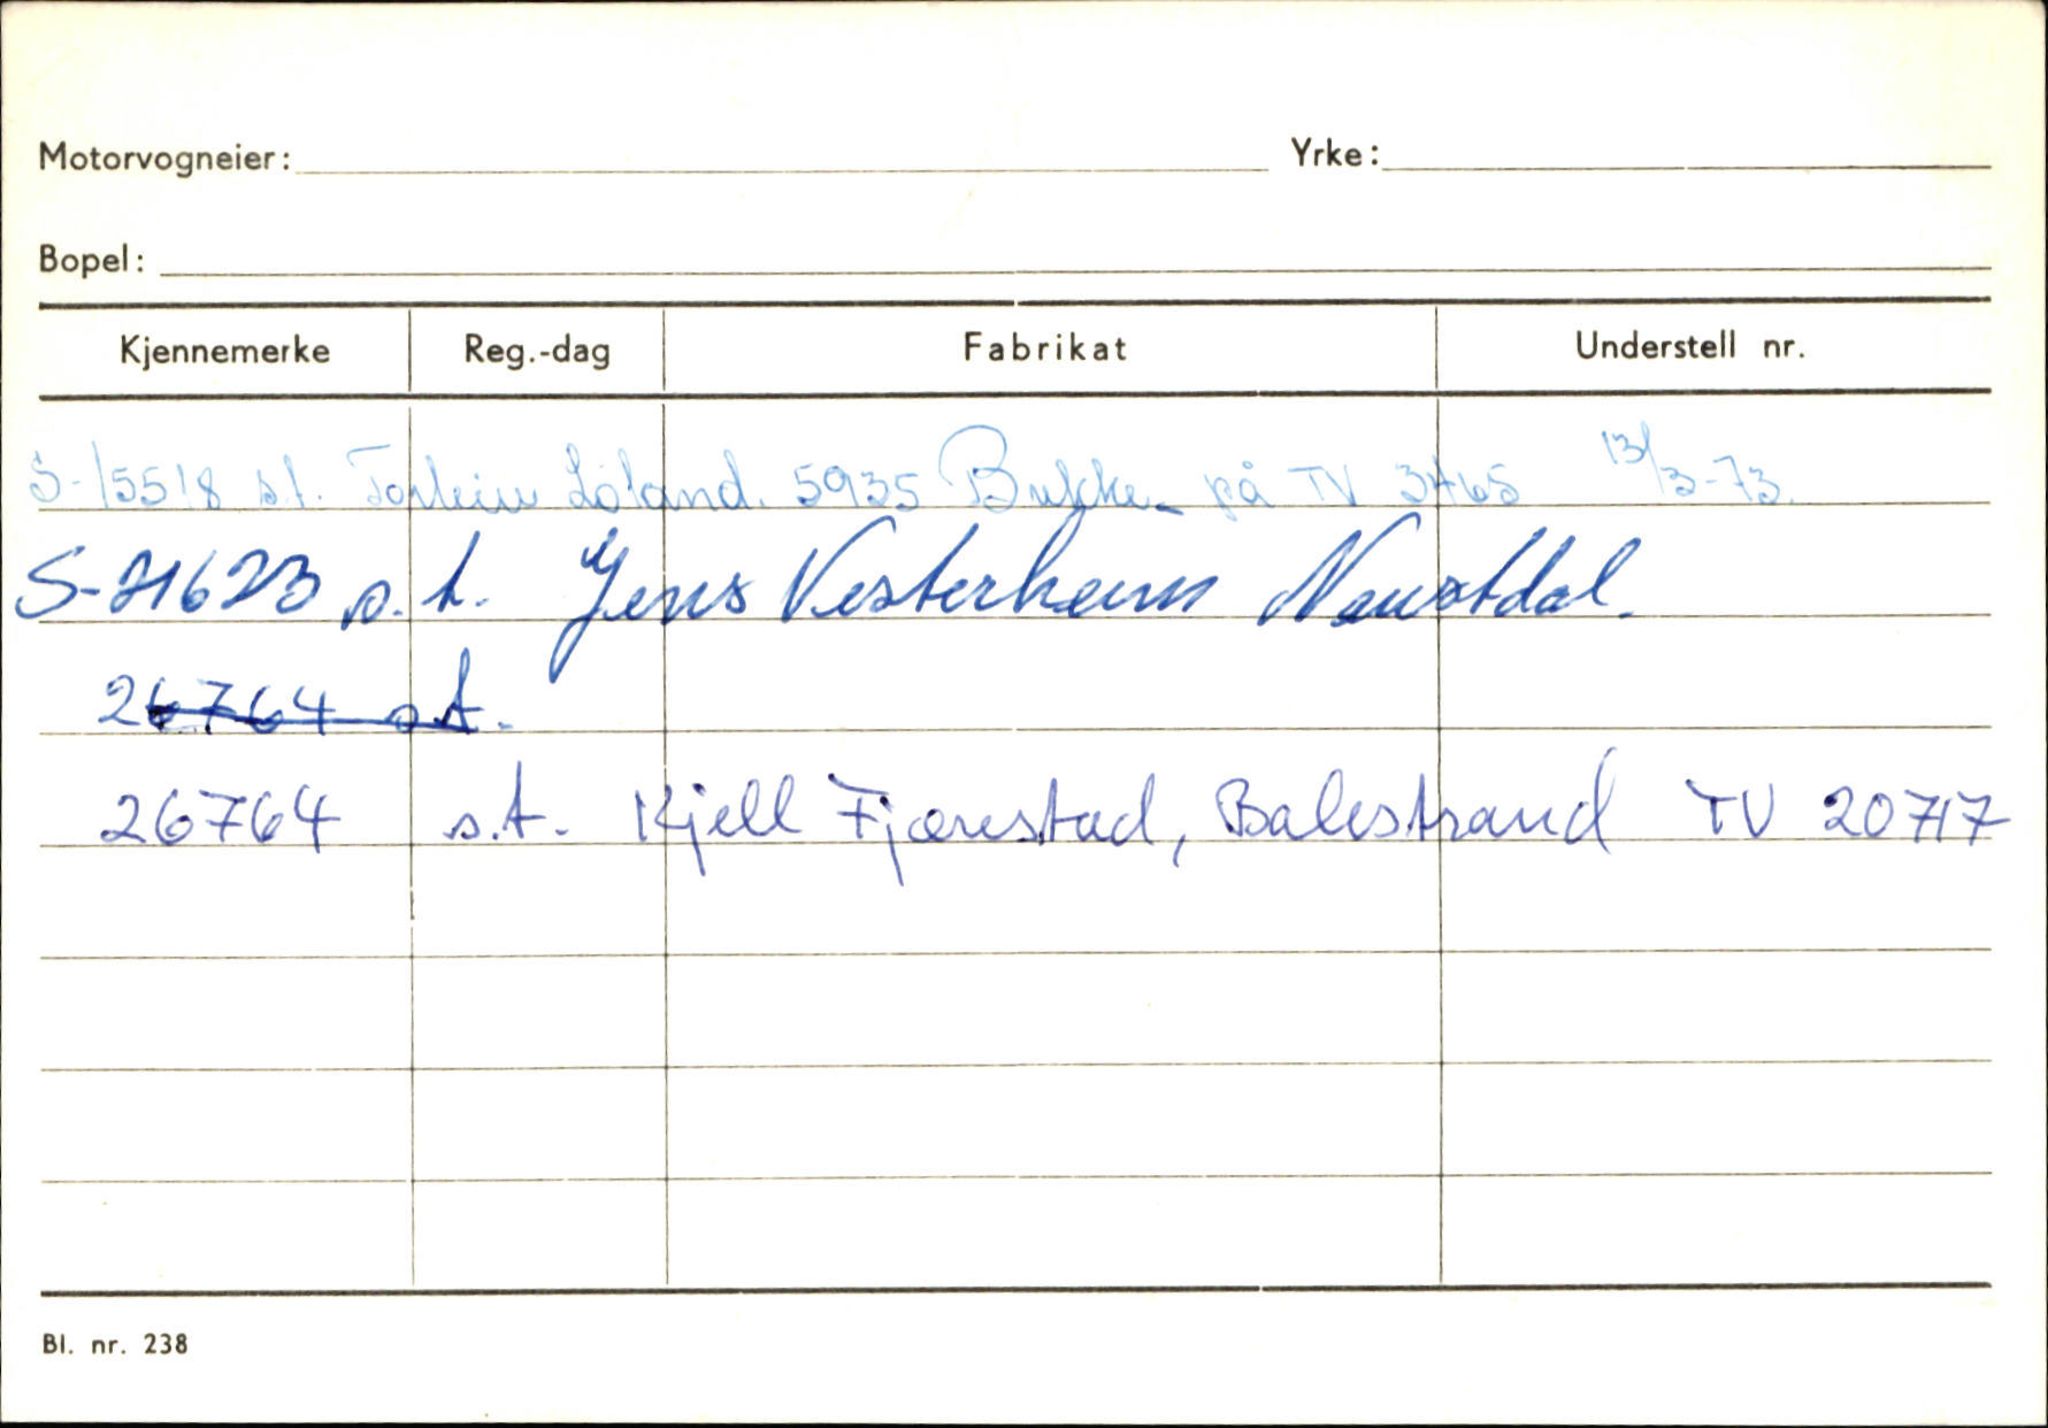 Motorvogneier: Yrke:
Bopel:
Kjennemerke Reg.-dag Fabrikat Understell nr.
S-15518 s.t. Torleiv Löland. 5935 Brekke på TV 3465 13/3-73.
S-21623 s.t. Jens Vesterheim Naustdal.
26764 s.t.
26764 s.t. Kjell Fjærestad, Balestrand TV 20717
Bl. nr. 238